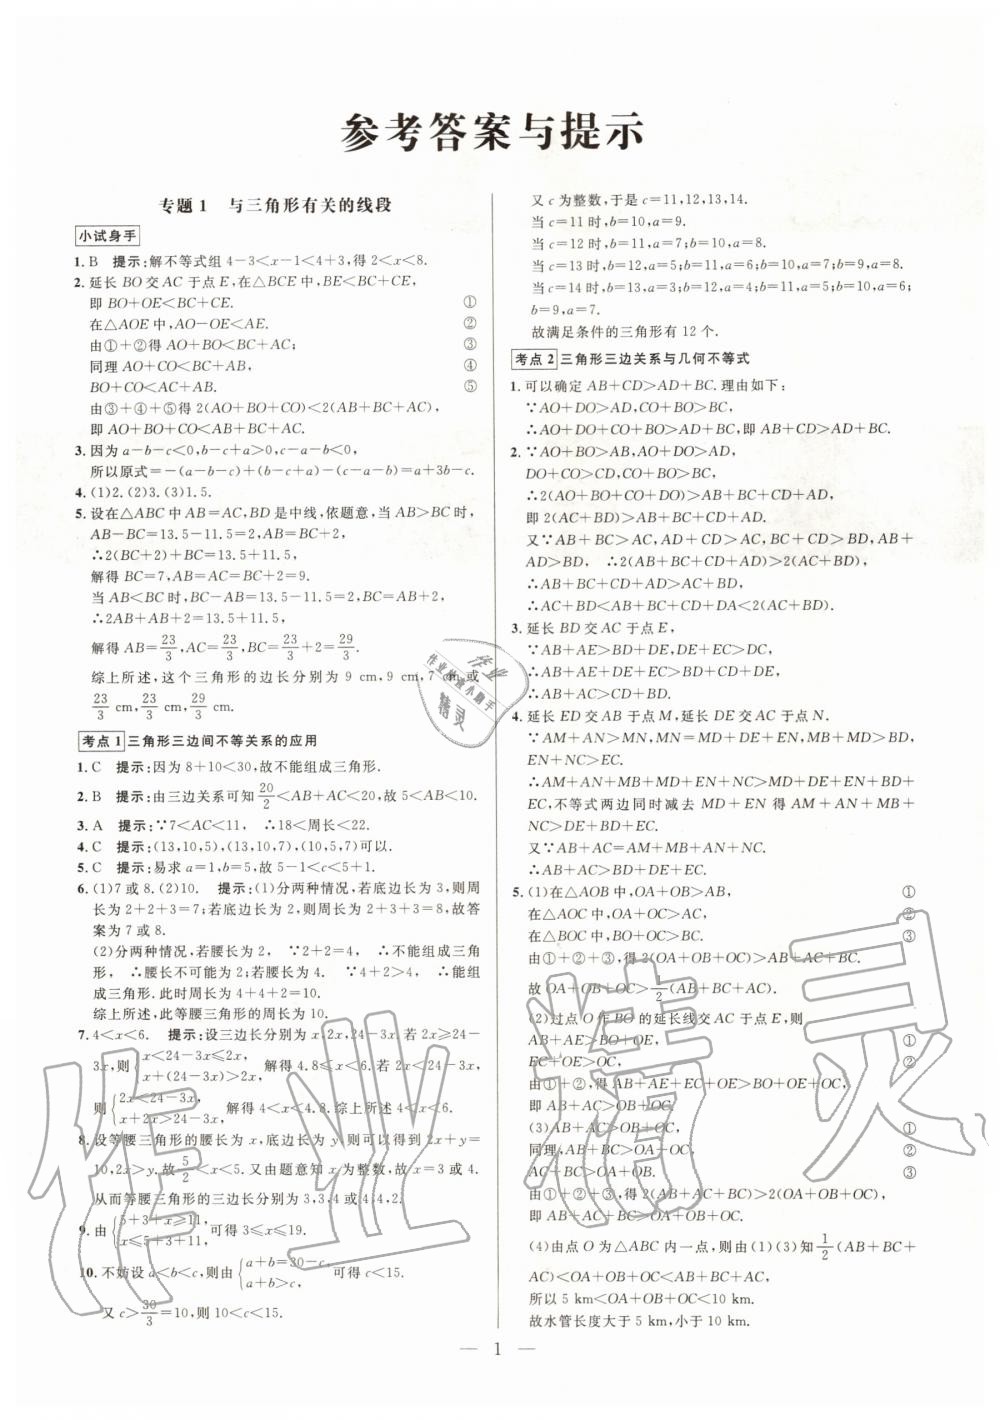 参考答案与提示
专题1 与三角形有关的线段
小试身手
1. B 提示:解不等式组4-3<x-1<4+3,得2<x<8.
2. 延长BO交AC于点E,在△BCE中,BE<BC+CE,
即BO+OE<BC+CE. ①
在△AOE中,AO-OE<AE. ②
由①+②得AO+BO<BC+AC; ③
同理AO+CO<BC+AB, ④
BO+CO<AC+AB. ⑤
由③+④+⑤得2(AO+BO+CO)<2(AB+BC+AC),
即AO+BO+CO<AB+BC+AC.
3. 因为a-b-c<0,b-c+a>0,c-a-b<0,
所以原式=-(a-b-c)+(b-c+a)-(c-a-b)=a+3b-c.
4. (1)2.(2)3.(3)1.5.
5. 设在△ABC中AB=AC,BD是中线,依题意,当AB>BC时,
AB-BC=13.5-11.5=2,AB=BC+2,
∴2(BC+2)+BC=13.5+11.5,
解得BC=7,AB=AC=BC+2=9.
当AB<BC时,BC-AB=13.5-11.5=2,BC=AB+2,
∴2AB+AB+2=13.5+11.5,
解得AB=23/3,AC=23/3,BC=23/3+2=29/3.
综上所述,这个三角形的边长分别为9 cm,9 cm,7 cm或
23/3 cm,23/3 cm,29/3 cm.
考点1 三角形三边间不等关系的应用
1. C 提示:因为8+10<30,故不能组成三角形.
2. B 提示:由三边关系可知20/2<AB+AC<20,故5<AB<10.
3. A 提示:∵7<AC<11, ∴18<周长<22.
4. C 提示:(13,10,5),(13,10,7),(10,5,7)可以.
5. C 提示:易求a=1,b=5,故5-1<c<5+1.
6. (1)7或8.(2)10. 提示:(1)分两种情况,若底边长为3,则周
长为2+2+3=7;若底边长为2,则周长为2+3+3=8,故答
案为7或8.
(2)分两种情况,若腰长为2, ∵2+2=4, ∴不能组成三角
形, ∴腰长不可能为2;若腰长为4. ∵4+2>4, ∴能组
成三角形.此时周长为4+4+2=10.
综上所述,此等腰三角形的周长为10.
7. 4<x<6. 提示:设三边长分别为x,2x,24-3x.若2x≥24-
3x,则{x<24-3x≤2x, x+(24-3x)>2x, 解得4.8≤x<6.若2x<24-3x,
则{2x<24-3x, x+2x>24-3x, 解得4<x<4.8.综上所述4<x<6.
8. 设等腰三角形的腰长为x,底边长为y,则可以得到2x+y=
10,2x>y.故5/2<x<5.又由题意知x为整数,故x=3或4.
从而等腰三角形的三边长分别为3,3,4或4,4,2.
9. 由{5+3+x≥11, x≤5+3+11, 可得3≤x≤19.
10. 不妨设a<b<c,则由{a+b=30-c, a+b>c, 可得c<15.
又c>30/3=10,则10<c<15.
又c为整数,于是c=11,12,13,14.
当c=11时,b=10,a=9.
当c=12时,b=11,a=7;b=10,a=8.
当c=13时,b=12,a=5;b=11,a=6;b=10,a=7;b=9,a=8.
当c=14时,b=13,a=3;b=12,a=4;b=11,a=5;b=10,a=6;
b=9,a=7.
故满足条件的三角形有12个.
考点2 三角形三边关系与几何不等式
1. 可以确定AB+CD>AD+BC.理由如下:
∵AO+DO>AD,CO+BO>BC,
∴AO+DO+CO+BO>AD+BC,即AB+CD>AD+BC.
2. ∵AO+BO>AB,AO+DO>AD,
DO+CO>CD,CO+BO>BC,
∴2(AO+BO+CO+DO)>AB+BC+CD+AD,
即2(AC+BD)>AB+BC+CD+AD.
又∵AB+BC>AC,AD+CD>AC,BC+CD>BD,AB+
AD>BD, ∴2(AB+BC+CD+AD)>2(AC+BD),
∴AB+BC+CD+AD>AC+BD,
∴AC+BD<AB+BC+CD+DA<2(AC+BD).
3. 延长BD交AC于点E,
∵AB+AE>BD+DE,DE+EC>DC,
∴AB+AE+DE+EC>BD+CD+DE,
∴AB+AC>CD+BD.
4. 延长ED交AB于点M,延长DE交AC于点N.
∵AM+AN>MN,MN=MD+DE+EN,MB+MD>BD,
EN+NC>EC.
∴AM+AN+MB+MD+EN+NC>MD+EN+DE+BD+
EC,不等式两边同时减去MD+EN得AM+AN+MB+
NC>DE+BD+EC.
又∵AB+AC=AM+MB+AN+NC,
∴AB+AC>BD+DE+EC.
5. (1)在△AOB中,OA+OB>AB, ①
在△AOC中,OA+OC>AC, ②
在△BOC中,OB+OC>BC, ③
由①+②+③,得2(OA+OB+OC)>AB+AC+BC.
故OA+OB+OC>1/2(AB+BC+AC).
(2)过点O作BO的延长线交AC于点E,则
AB+AE>BO+OE, ①
EC+OE>OC, ②
由①+②,得AB+AE+EC+OE>BO+OE+OC,
即AB+AC>OB+OC.
(3)AB+AC>OB+OC, ①
同理,AB+BC>OA+OC, ②
AC+BC>OA+OB. ③
由①+②+③,得2(AB+AC+BC)>2(OA+OB+OC),
即AB+AC+BC>OA+OB+OC.
(4)由点O为△ABC内一点,则由(1)(3)知1/2(AB+BC+
AC)<OA+OB+OC<AB+BC+AC,
所以5 km<OA+OB+OC<10 km.
故水管长度大于5 km,小于10 km.
— 1 —
作业
作业检查小助手
精灵
作业精灵